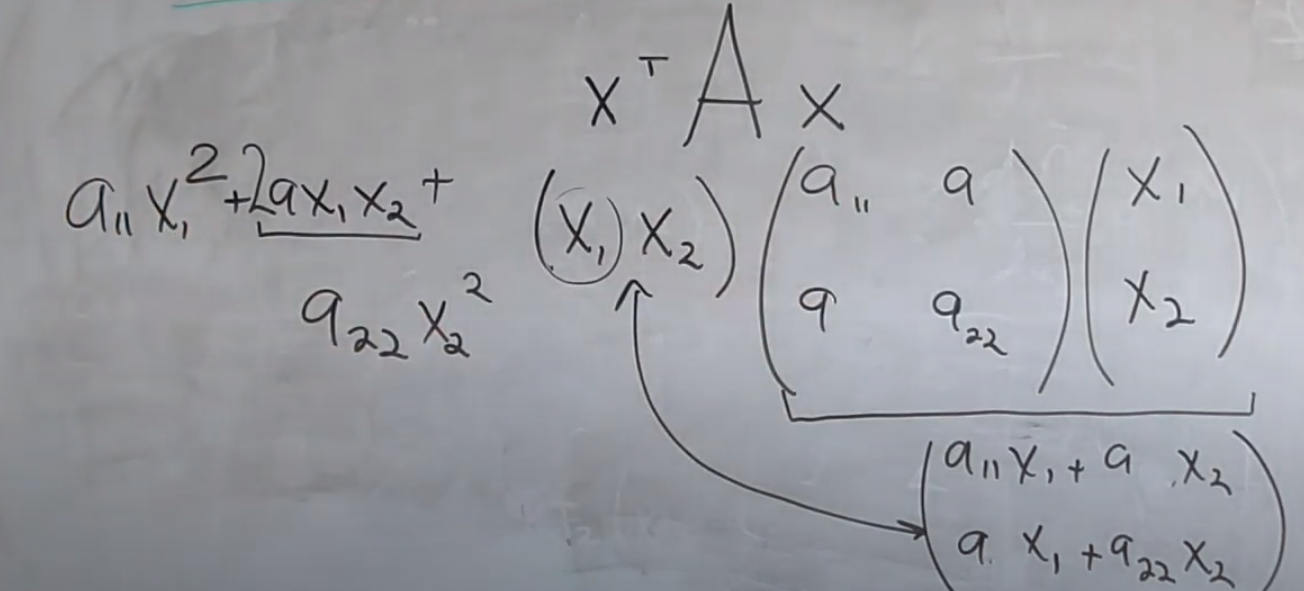 xᵀ A x
a₁₁ x₁² + 2a x₁ x₂ +
a₂₂ x₂²
(x₁ x₂) (a₁₁ a) (x₁)
(a a₂₂) (x₂)
(a₁₁ x₁ + a x₂)
(a x₁ + a₂₂ x₂)